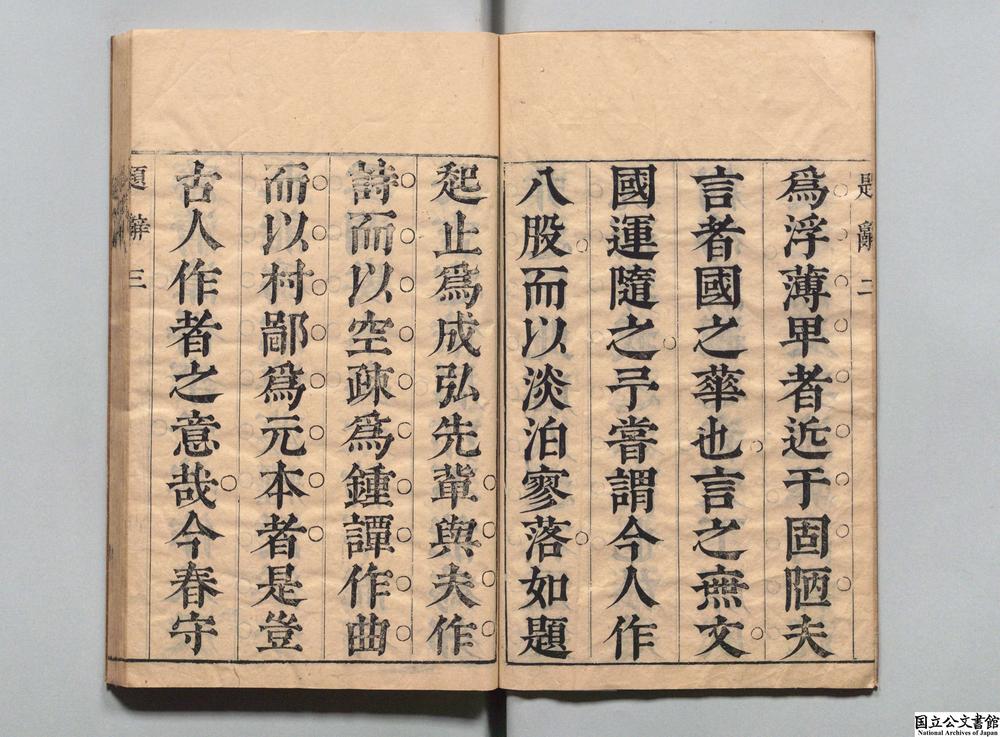 題辭 二
爲浮薄甲者近于固陋夫
言者國之華也言之無文
國運隨之予嘗謂今人作
八股而以淡泊寥落如題
起止爲成弘先軰與夫作
詩而以空疎爲鍾譚作曲
而以村鄙爲元本者是豈
古人作者之意哉今春守
題辭 三
国立公文書館
National Archives of Japan